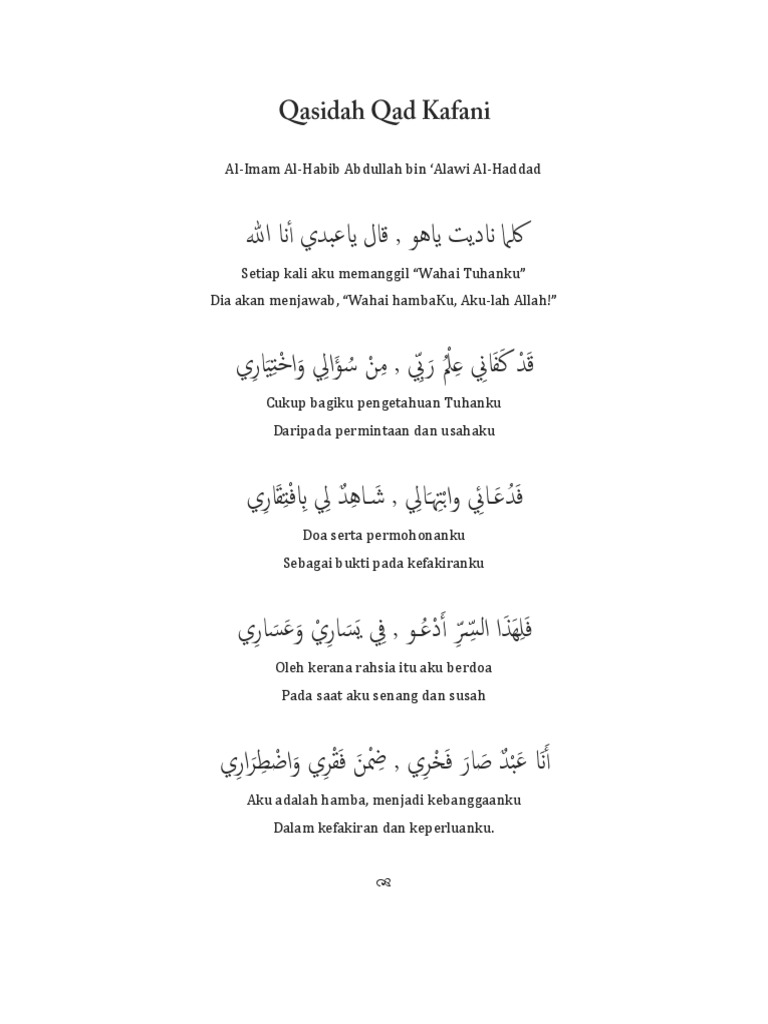 Qasidah Qad Kafani
Al-Imam Al-Habib Abdullah bin ‘Alawi Al-Haddad
كلما ناديت ياهو , قال ياعبدي أنا الله
Setiap kali aku memanggil “Wahai Tuhanku”
Dia akan menjawab, “Wahai hambaKu, Aku-lah Allah!”
قَدْ كَفَانِي عِلْمُ رَبِّي , مِنْ سُؤَالِي وَاخْتِيَارِي
Cukup bagiku pengetahuan Tuhanku
Daripada permintaan dan usahaku
فَدُعَـائِي وابْتِهَـالِي , شَـاهِدٌ لِي بِافْتِقَارِي
Doa serta permohonanku
Sebagai bukti pada kefakiranku
فَلِهَذَا السِّرِّ أَدْعُـو , فِي يَسَارِيْ وَعَسَارِي
Oleh kerana rahsia itu aku berdoa
Pada saat aku senang dan susah
أَنَا عَبْدٌ صَارَ فَخْرِي , ضِمْنَ فَقْرِي وَاضْطِرَارِي
Aku adalah hamba, menjadi kebanggaanku
Dalam kefakiran dan keperluanku.